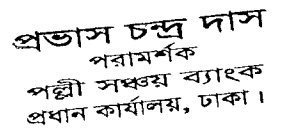 প্রভাস চন্দ্র দাস
পরামর্শক
পল্লী সঞ্চয় ব্যাংক
প্রধান কার্যালয়, ঢাকা।